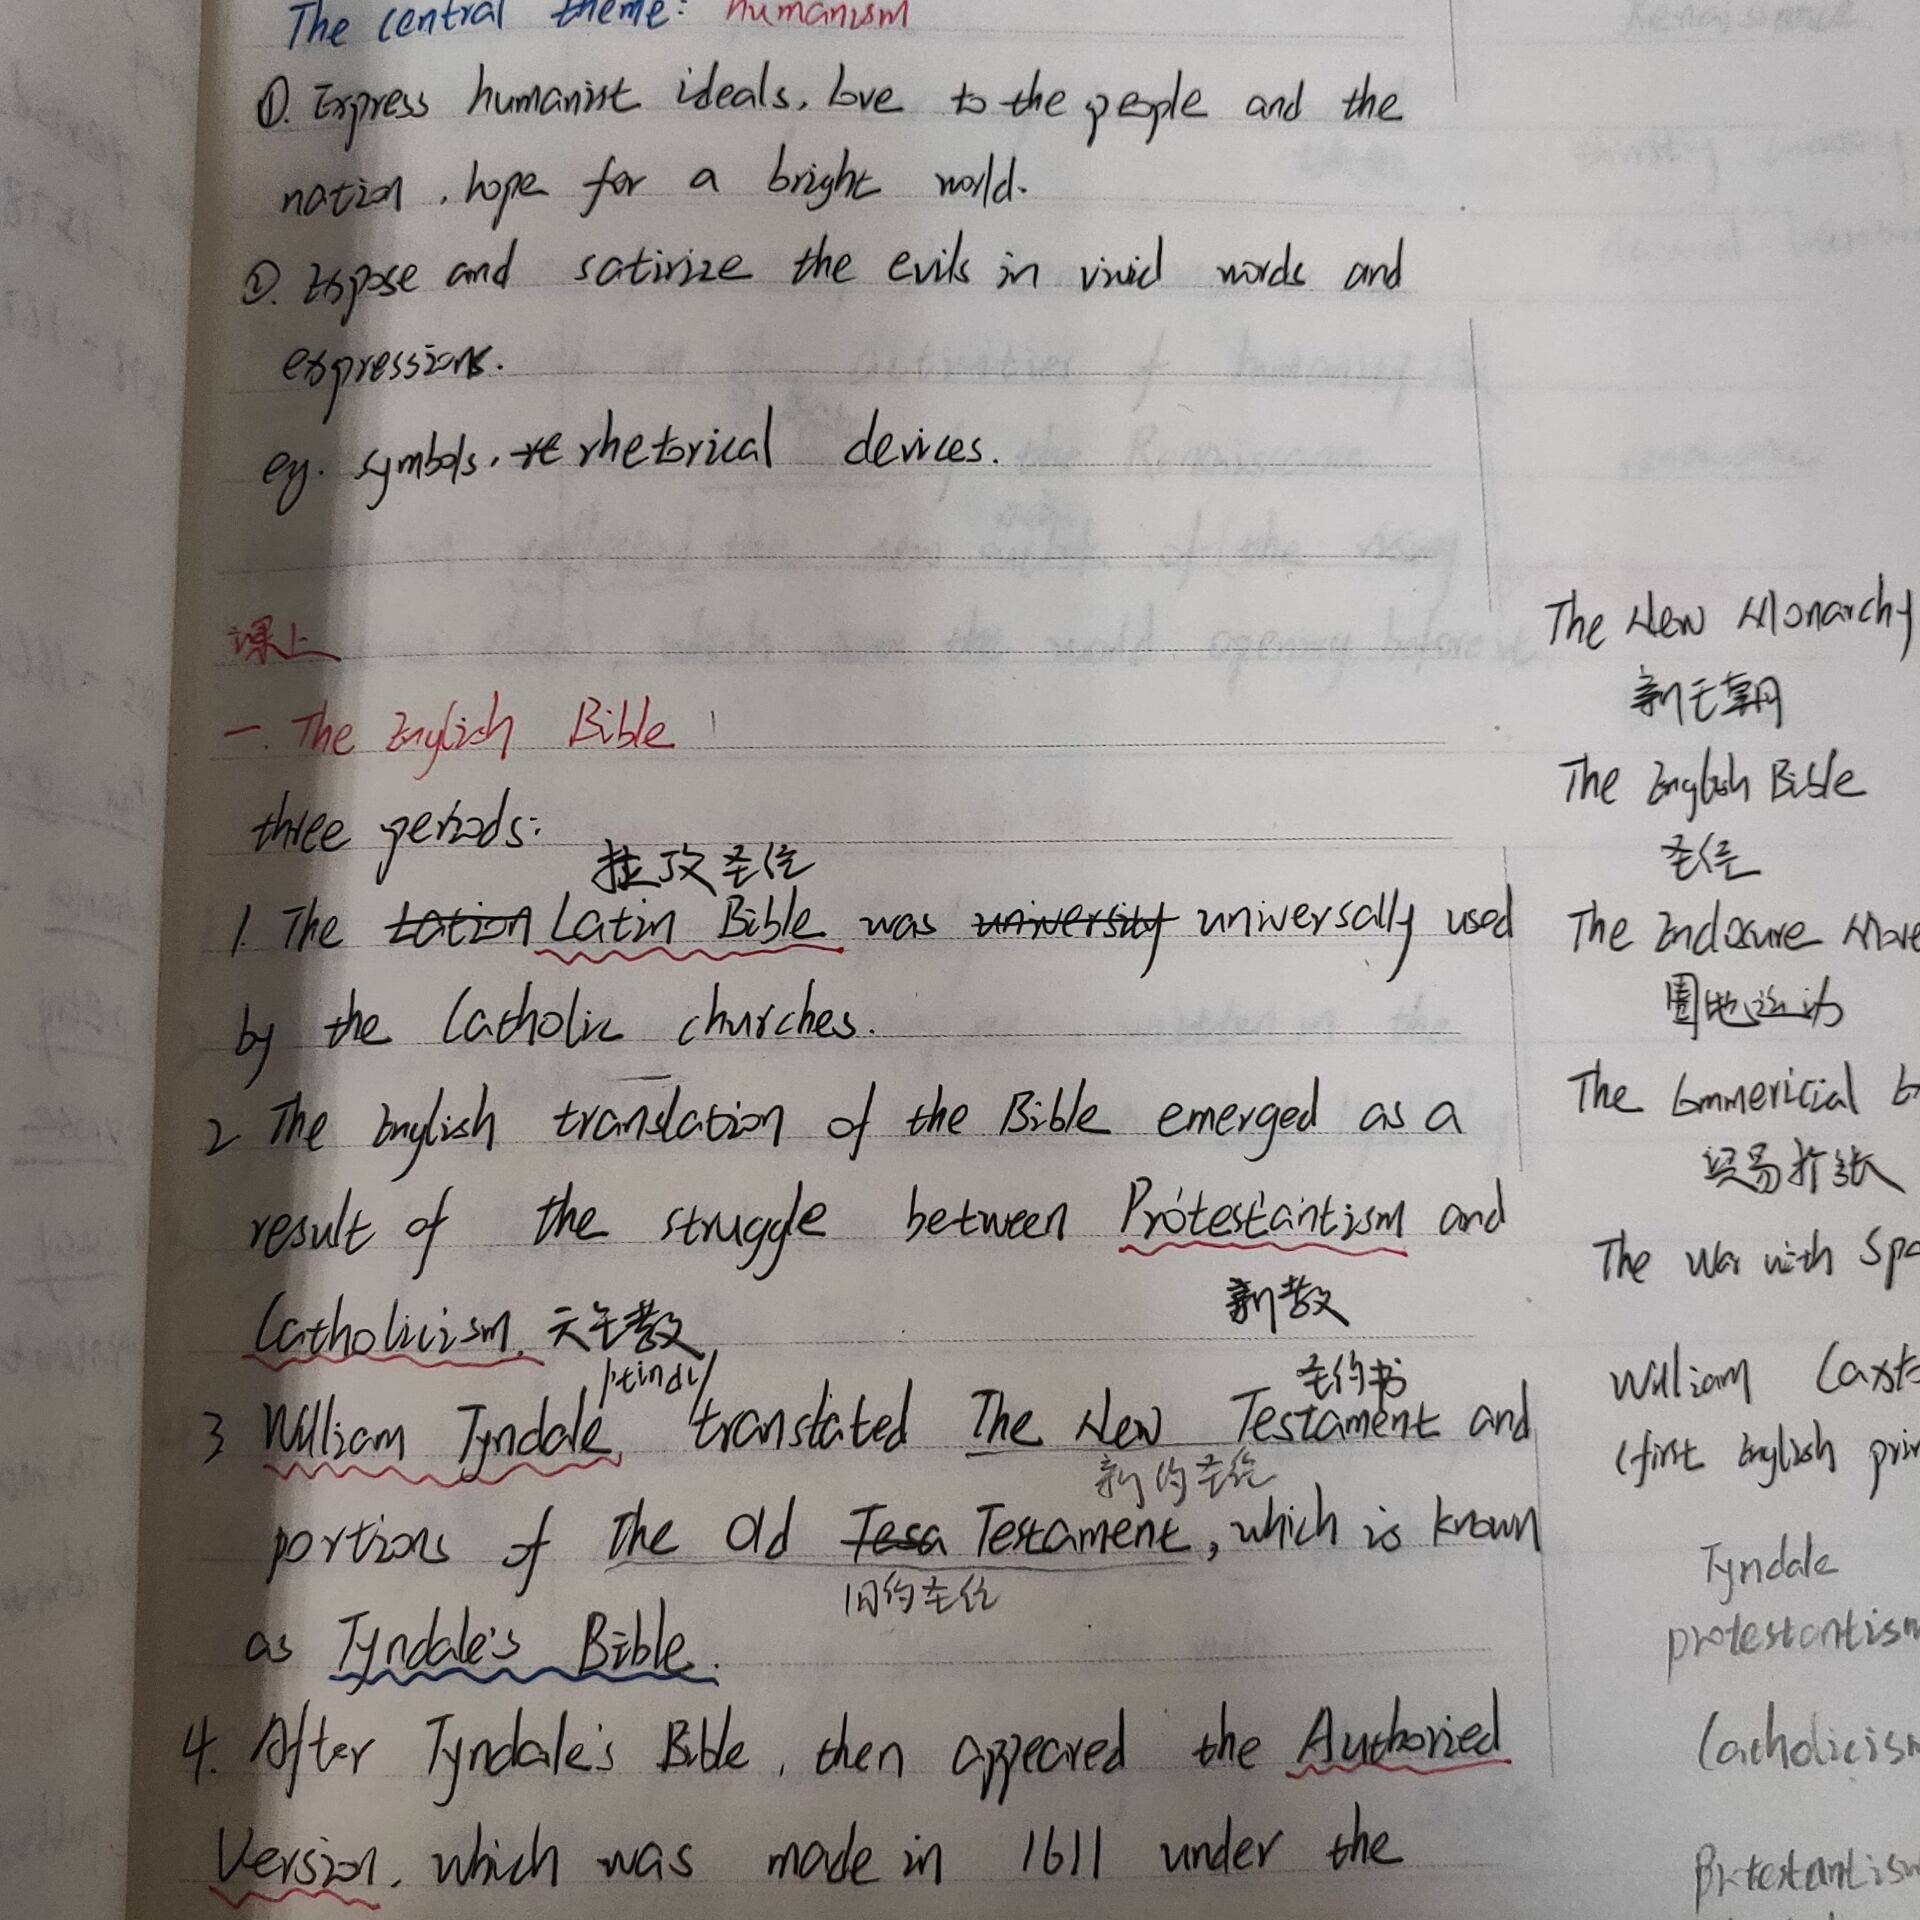 The central theme: humanism
①. Express humanist ideals, love to the people and the
nation, hope for a bright world.
②. Expose and satirize the evils in vivid words and
expressions.
eg. symbols, re rhetorical devices.
课上
一. The English Bible
three periods:
圣经
1. The Lation Latin Bible was university universally used
by the Catholic churches.
2 The English translation of the Bible emerged as a
result of the struggle between Protestantism and
新教
Catholicism. 天主教
圣约书
3 William Tyndale, translated The New Testament and
新约圣经
portions of The Old Tesa Testament, which is known
旧约圣经
as Tyndale's Bible.
4. After Tyndale's Bible, then appeared the Authoried
Version, which was made in 1611 under the
The New Monarchy
新王朝
The English Bible
圣经
The Enclosure Move
圈地运动
The Commericial
贸易扩张
The War with Spa
William Caxto
(first English prin
Tyndale
protestantism
Catholicism
Protestantism